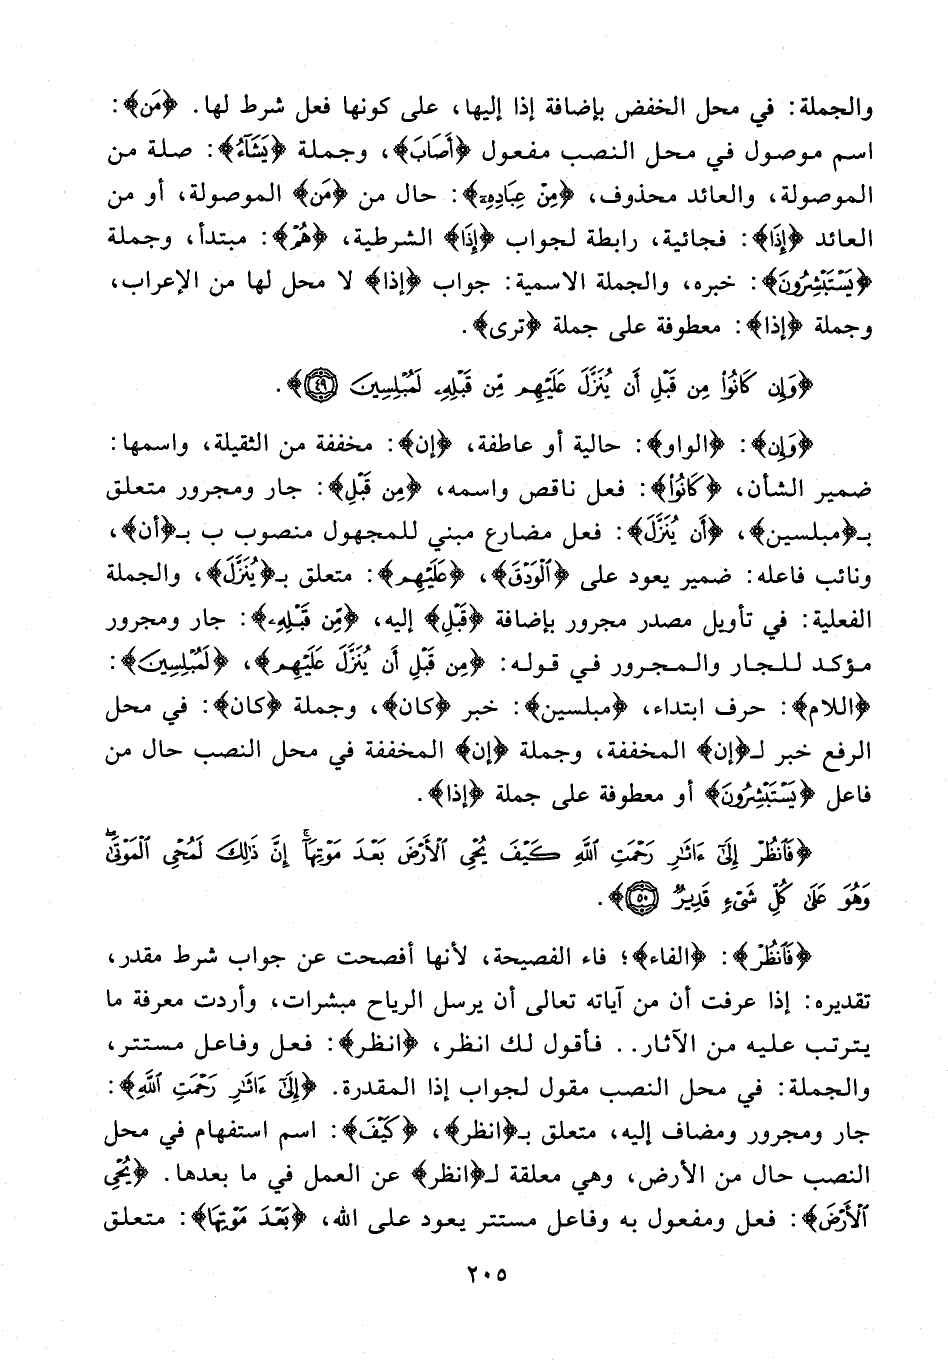 والجملة: في محل الخفض بإضافة إذا إليها، على كونها فعل شرط لها. ﴿مَن﴾:
اسم موصول في محل النصب مفعول ﴿أَصَابَ﴾، وجملة ﴿يَشَآءُ﴾: صلة من
الموصولة، والعائد محذوف، ﴿مِنْ عِبَادِهِۦ﴾: حال من ﴿مَن﴾ الموصولة، أو من
العائد ﴿إِذَا﴾: فجائية، رابطة لجواب ﴿إِذَا﴾ الشرطية، ﴿هُمْ﴾: مبتدأ، وجملة
﴿يَسْتَبْشِرُونَ﴾: خبره، والجملة الاسمية: جواب ﴿إذا﴾ لا محل لها من الإعراب،
وجملة ﴿إذا﴾: معطوفة على جملة ﴿ترى﴾.
﴿وَإِن كَانُوا۟ مِن قَبْلِ أَن يُنَزَّلَ عَلَيْهِم مِّن قَبْلِهِۦ لَمُبْلِسِينَ ٤٩﴾.
﴿وَإِن﴾: ﴿الواو﴾: حالية أو عاطفة، ﴿إن﴾: مخففة من الثقيلة، واسمها:
ضمير الشأن، ﴿كَانُوا۟﴾: فعل ناقص واسمه، ﴿مِن قَبْلِ﴾: جار ومجرور متعلق
بـ﴿مبلسين﴾، ﴿أَن يُنَزَّلَ﴾: فعل مضارع مبني للمجهول منصوب ب بـ﴿أن﴾،
ونائب فاعله: ضمير يعود على ﴿ٱلْوَدْقَ﴾، ﴿عَلَيْهِم﴾: متعلق بـ﴿يُنَزَّلَ﴾، والجملة
الفعلية: في تأويل مصدر مجرور بإضافة ﴿قَبْلِ﴾ إليه، ﴿مِّن قَبْلِهِۦ﴾: جار ومجرور
مؤكد للجار والمجرور في قوله: ﴿مِن قَبْلِ أَن يُنَزَّلَ عَلَيْهِم﴾، ﴿لَمُبْلِسِينَ﴾:
﴿اللام﴾: حرف ابتداء، ﴿مبلسين﴾: خبر ﴿كان﴾، وجملة ﴿كان﴾: في محل
الرفع خبر لـ﴿إن﴾ المخففة، وجملة ﴿إن﴾ المخففة في محل النصب حال من
فاعل ﴿يَسْتَبْشِرُونَ﴾ أو معطوفة على جملة ﴿إذا﴾.
﴿فَٱنظُرْ إِلَىٰٓ ءَاثَٰرِ رَحْمَتِ ٱللَّهِ كَيْفَ يُحْىِ ٱلْأَرْضَ بَعْدَ مَوْتِهَآ ۚ إِنَّ ذَٰلِكَ لَمُحْىِ ٱلْمَوْتَىٰ ۖ
وَهُوَ عَلَىٰ كُلِّ شَىْءٍ قَدِيرٌ ٥٠﴾.
﴿فَٱنظُرْ﴾: ﴿الفاء﴾؛ فاء الفصيحة، لأنها أفصحت عن جواب شرط مقدر،
تقديره: إذا عرفت أن من آياته تعالى أن يرسل الرياح مبشرات، وأردت معرفة ما
يترتب عليه من الآثار.. فأقول لك انظر، ﴿انظر﴾: فعل وفاعل مستتر،
والجملة: في محل النصب مقول لجواب إذا المقدرة. ﴿إِلَىٰٓ ءَاثَٰرِ رَحْمَتِ ٱللَّهِ﴾:
جار ومجرور ومضاف إليه، متعلق بـ﴿انظر﴾، ﴿كَيْفَ﴾: اسم استفهام في محل
النصب حال من الأرض، وهي معلقة لـ﴿انظر﴾ عن العمل في ما بعدها. ﴿يُحْىِ
ٱلْأَرْضَ﴾: فعل ومفعول به وفاعل مستتر يعود على الله، ﴿بَعْدَ مَوْتِهَا﴾: متعلق
٢٠٥